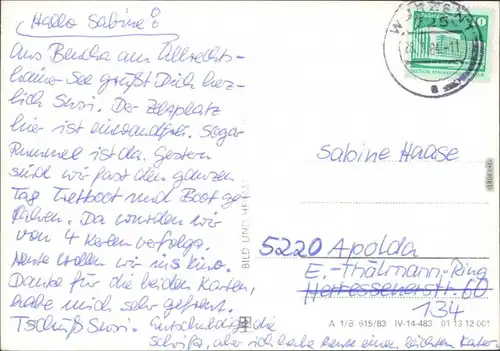 Hallo Sabine!
Aus Beucha am Albrechts-
hainer See grüßt Dich herz-
lich Susi. Der Zeltplatz
hier ist einwandfrei. Sogar
Rummel ist da. Gestern
sind wir fast den ganzen
Tag Tretboot und Boot ge-
fahren. Da wurden wir
von 4 Kerlen verfolgt.
Heute wollen wir ins Kino.
Danke für die beiden Karten,
habe mich sehr gefreut.
Tschüß Susi. Entschuldige die
Schrift, aber ich habe heute einen leichten
BILD UND HEIMAT
10
Sabine Haase
5220 Apolda
E.-Thälmann-Ring
Herressenerstr. 60
134
A 1/B 615/83 IV-14-483 01 13 12 001